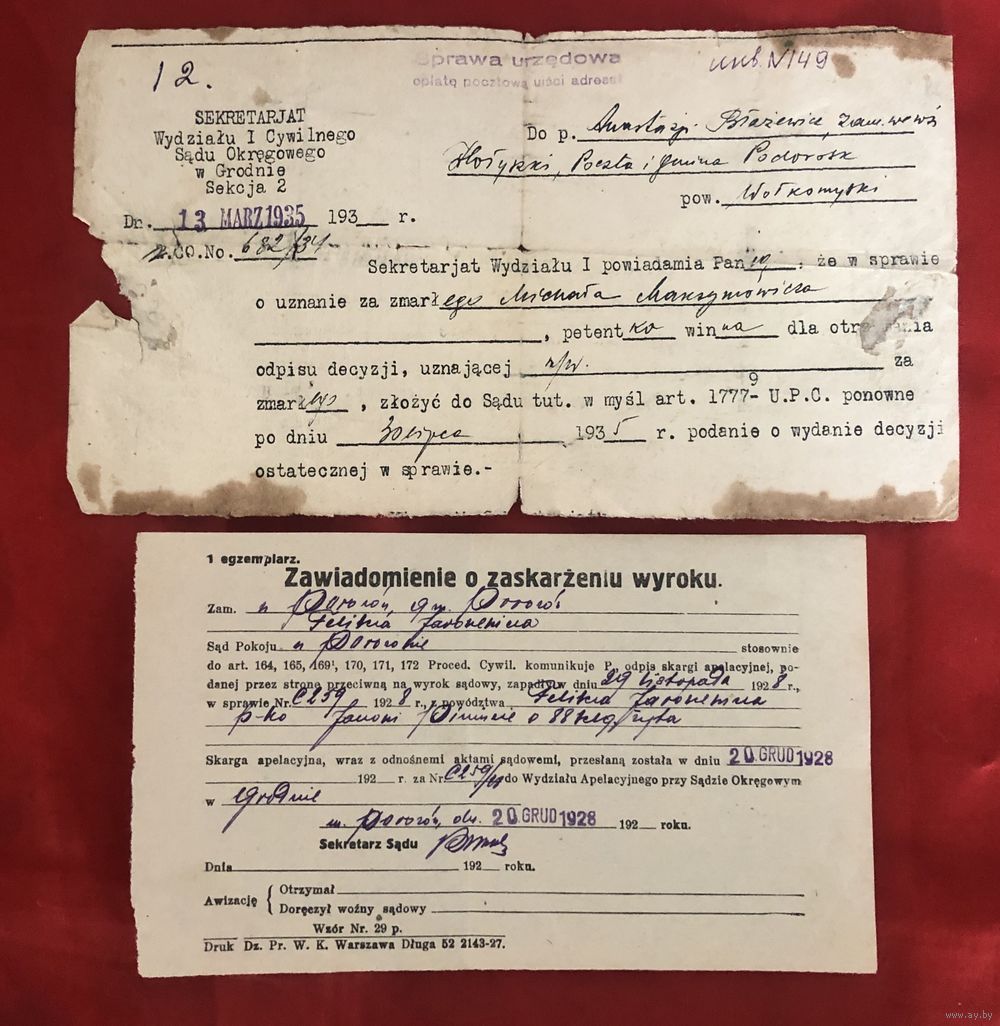 Sprawa urzędowa
opłatę pocztową uiści adresat
12.
N 149
SEKRETARJAT
Wydziału I Cywilnego
Sądu Okręgowego
w Grodnie
Sekcja 2
Do p. Anastazji Błażewicz, zam. we wsi
Poczta i gmina Podorosk
pow. Wołkowyski
Dn. 13 MARZ 1935 193 r.
CO.No. 682/34
Sekretarjat Wydziału I powiadamia Panią, że w sprawie
o uznanie za zmarłego Michała Maksymowicza
, petentka winna dla otrzymania
odpisu decyzji, uznającej n/w. za
zmarłego, złożyć do Sądu tut. w myśl art. 1777-9 U.P.C. ponowne
po dniu 30 lipca 1935 r. podanie o wydanie decyzji
ostatecznej w sprawie.-
1 egzemplarz.
Zawiadomienie o zaskarżeniu wyroku.
Zam. gm.
Sąd Pokoju w stosownie
do art. 164, 165, 169¹, 170, 171, 172 Proced. Cywil. komunikuje P. odpis skargi apelacyjnej, po-
danej przez stronę przeciwną na wyrok sądowy, zapadły w dniu 29 listopada 1928 r.,
w sprawie Nr. C 259 1928 r., z powództwa
p-ko o 88 klg żyta
Skarga apelacyjna, wraz z odnośnemi aktami sądowemi, przesłaną została w dniu 20 GRUD 1928
192 r. za Nr. C 259/28 do Wydziału Apelacyjnego przy Sądzie Okręgowym
w Grodnie
m. dn. 20 GRUD 1928 192 roku.
Sekretarz Sądu
Dnia 192 roku.
Awizację { Otrzymał
Doręczył woźny sądowy
Wzór Nr. 29 p.
Druk Dz. Pr. W. K. Warszawa Długa 52 2143-27.
www.ay.by